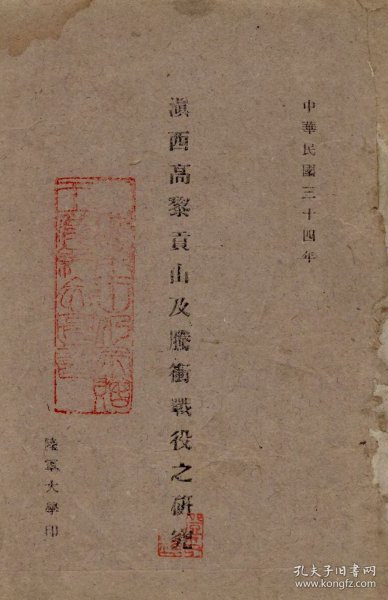 中華民國三十四年
滇西高黎貢山及騰衝戰役之研究
陸軍大學印
孔夫子旧书网